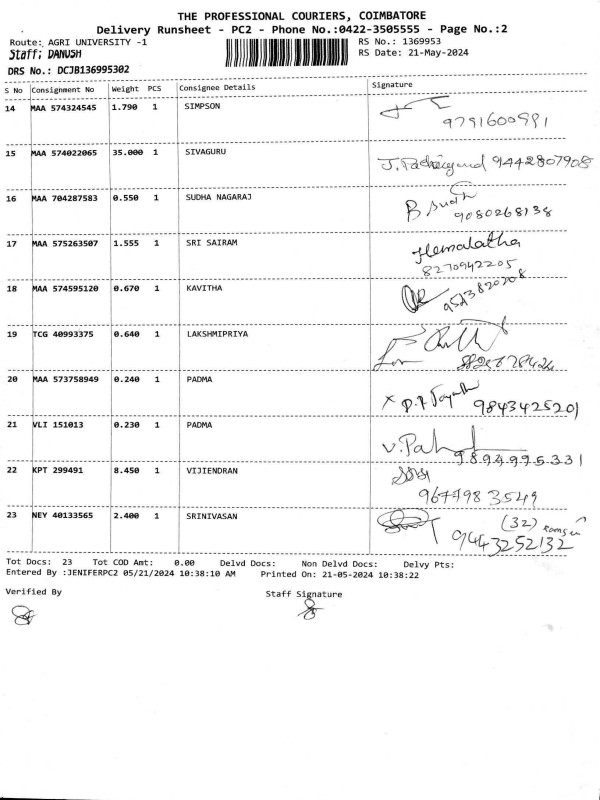 THE PROFESSIONAL COURIERS, COIMBATORE
Delivery Runsheet - PC2 - Phone No.:0422-3505555 - Page No.:2
Route: AGRI UNIVERSITY -1 RS No.: 1369953
Staff: DANUSH RS Date: 21-May-2024
DRS No.: DCJB136995302
S No Consignment No Weight PCS Consignee Details Signature
14 MAA 574324545 1.790 1 SIMPSON
9791600991
15 MAA 574022065 35.000 1 SIVAGURU 9442807908
16 MAA 704287583 0.550 1 SUDHA NAGARAJ B Sudh
9080268138
17 MAA 575263507 1.555 1 SRI SAIRAM Hemalatha
8270942205
18 MAA 574595120 0.670 1 KAVITHA
19 TCG 40993375 0.640 1 LAKSHMIPRIYA
20 MAA 573758949 0.240 1 PADMA
9843425201
21 VLI 151013 0.230 1 PADMA
9894995331
22 KPT 299491 8.450 1 VIJIENDRAN
23 NEY 40133565 2.400 1 SRINIVASAN (32)
9443252132
Tot Docs: 23 Tot COD Amt: 0.00 Delvd Docs: Non Delvd Docs: Delvy Pts:
Entered By :JENIFERPC2 05/21/2024 10:38:10 AM Printed On: 21-05-2024 10:38:22
Verified By Staff Signature